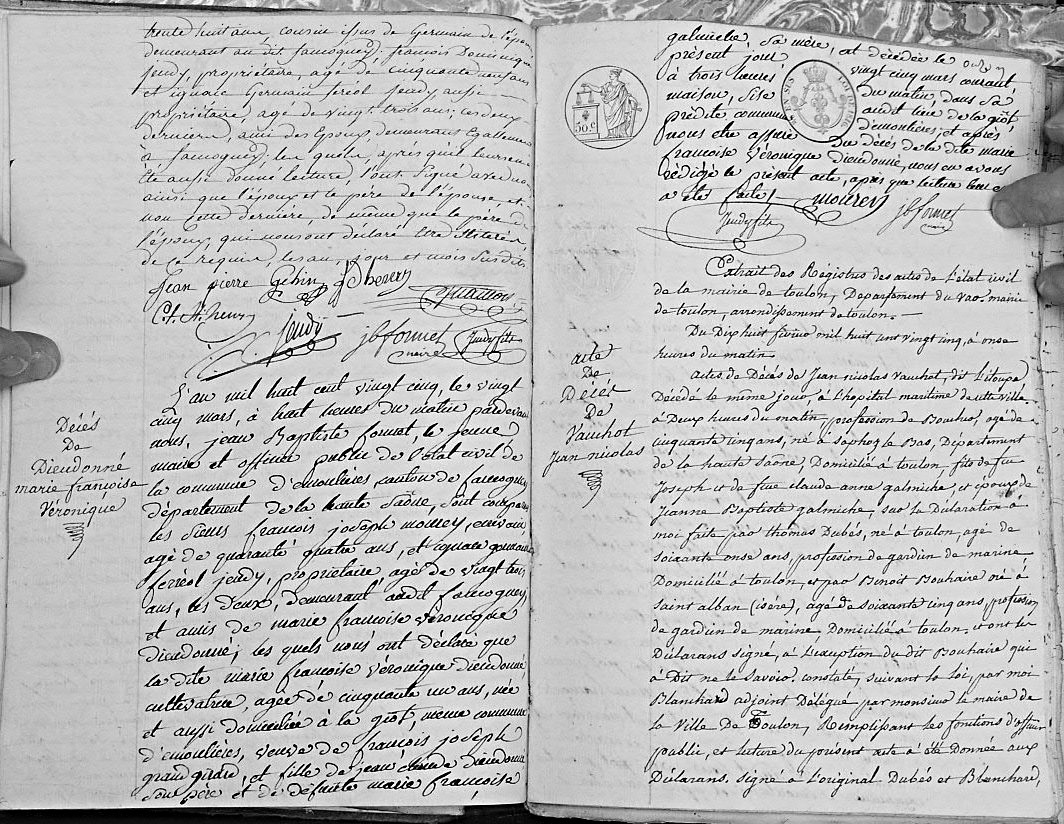 trente huit ans, cousin issus de Germain de l'épou
demeurant au dit faucogney, françois Dominiq
jeudy, propriétaire, agé de cinquante neuf ans
et ignace Germain feréol jeudy aussi
propriétaire, agé de vingt trois ans; ces deux
derniers, amis des Epoux demeurans Egalleme
à faucogney; les quels, après qu'il leur en
été aussi donné lecture, l'ont signé avec no
ainsi que l'époux et le père de l'épouse, et
non cette dernière, de même que le père de
l'époux, qui nous ont déclaré être illitérés,
de ce réquis, les an, jour et mois susdits
Jean pierre Gehin
jeudy jbformet Jeudy fils
maire
Décés
De
Dieudonné
marie françoise
Véronique
L'an mil huit cent vingt cinq, le vingt
cinq mars, à huit heures du matin pardevan
nous, jean Baptiste formet, le jeune
maire et officier public de l'état civil de
la commune d'émoulières, canton de faucogney
département de la haute Saône, sont comparu
les sieurs françois joseph mourey, écrivain
agé de quarante quatre ans, et ignace germain
ferréol jeudy, propriétaire, agé de vingt trois
ans, les deux, demeurant audit faucogney
et amis de marie françoise véronique
dieudonné; les quels nous ont déclaré que
la dite marie françoise véronique dieudonné,
cultivatrice, agée de cinquante un ans, née
et aussi domiciliée à la grôt, même commune
d'émoulières, veuve de françois joseph
grand girard, et fille de jean claude dieudonné
son père et de défunte marie françoise
galmiche, sa mère, est décédée le
présent jour vingt cinq mars courant,
à trois heures du matin, dans sa
maison, sise audit lieu de la grôt,
prédite commune d'émoulières; et après
nous être assuré du décès de la dite marie
francoise véronique dieudonné, nous en avons
rédigé le présent acte, après que lecture leur e
a été faite. mourey
Jeudy fils jbformet
maire
50 c.
acte
De
Décés
De
Vauchot
Jean nicolas
Extrait des Régistres des actes de l'état civil
de la mairie de toulon, Département du Var. mairie
de toulon, arrondissement de toulon.
Du Dix huit fevrier mil huit cent vingt cinq, à onse
heures du matin.
Actes de Décés de Jean nicolas Vauchot, dit l'Etoupe
Décédé le même jour, à l'hopital maritime de cette ville
à Deux heures du matin, profession de Boucher, agé de
cinquante cinq ans, né à Saphoz le Bas, Département
de la haute Saône, Domicilié à toulon, fils de feu
Joseph et de feue claude anne galmiche, et époux de
Jeanne Baptiste galmiche, sur la Déclaration à
moi faite par thomas Dubés, né à toulon, agé de
soixante onse ans, profession de gardien de marine
Domicilié à toulon, et par Benoit Bouhaire né à
saint alban (isère), agé de soixante cinq ans, profession
de gardien de marine, Domicilié à toulon, et ont les
Déclarans signé, à l'exception du dit Bouhaire qui
à Dit ne le savoir. constaté, suivant la loi, par moi
Blanchard adjoint Délégué par monsieur le maire de
la ville de Toulon, Remplissant les fonctions d'officier
public, et lecture du présent acte à été Donnée aux
Déclarans, signé à l'original Dubés et Blanchard,